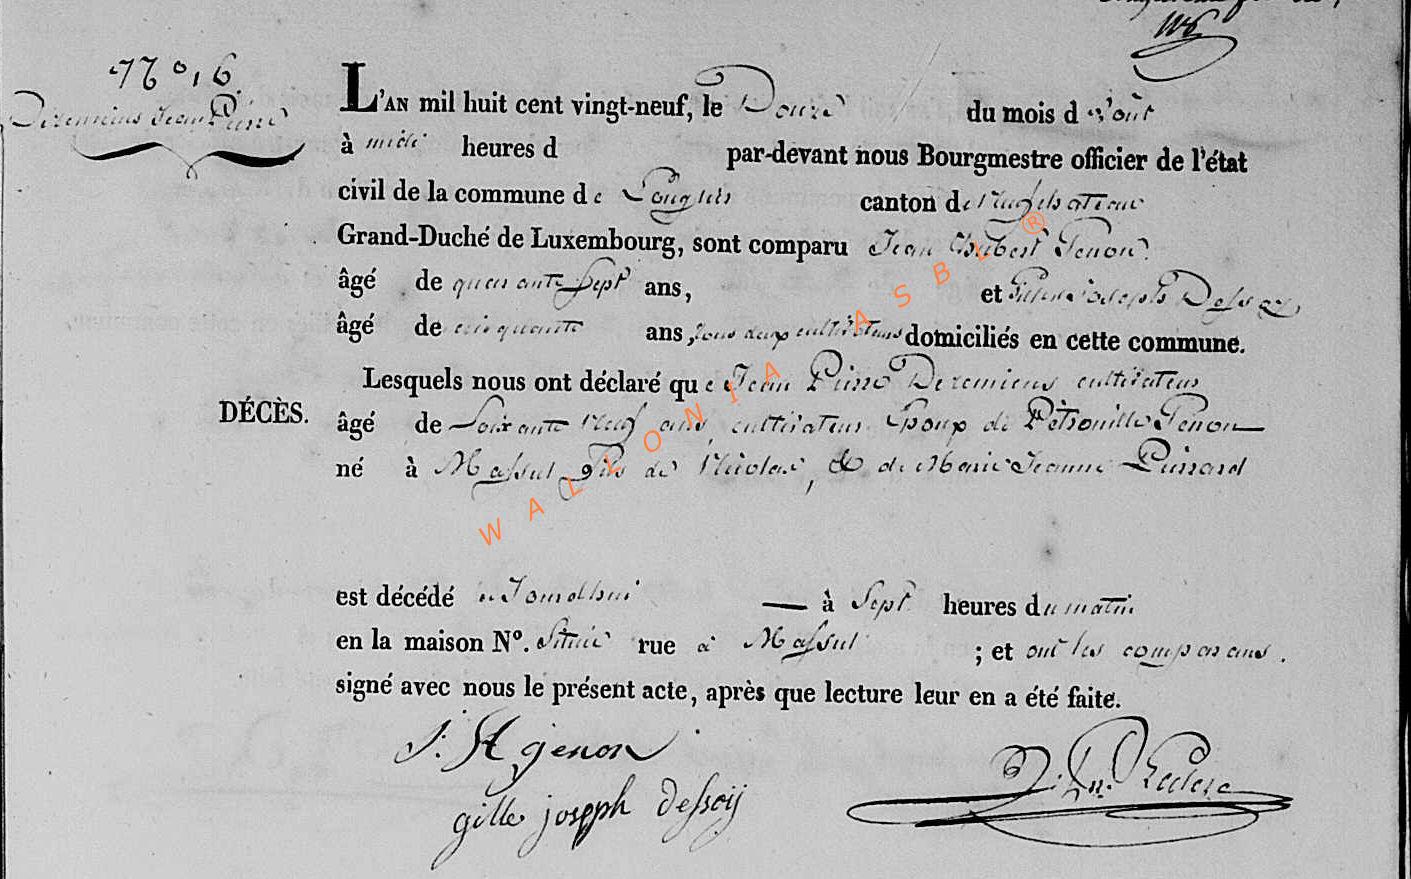 N° 16
Deremiens Jean Pierre
L'AN mil huit cent vingt-neuf, le Douze du mois d'août
à midi heures d par-devant nous Bourgmestre officier de l'état
civil de la commune de Longlier canton de Neufchateau
Grand-Duché de Luxembourg, sont comparu Jean Hubert Genon
âgé de quarante Sept ans, et Gilles Joseph Dessoy
âgé de cinquante ans, tous deux cultivateurs domiciliés en cette commune.
Lesquels nous ont déclaré que Jean Pierre Deremiens cultivateur
DÉCÈS.
âgé de Soixante Neuf ans, cultivateur Epoux de Pétronille Genon
né à Massul fils de Nicolas, & de Marie Jeanne Pierrard
est décédé aujourdhui à Sept heures du matin
en la maison N°. Située rue à Massul ; et ont les comparans.
signé avec nous le présent acte, après que lecture leur en a été faite.
J. H genon
gille joseph dessoij
Leclere
WALLONIA ASBL ®